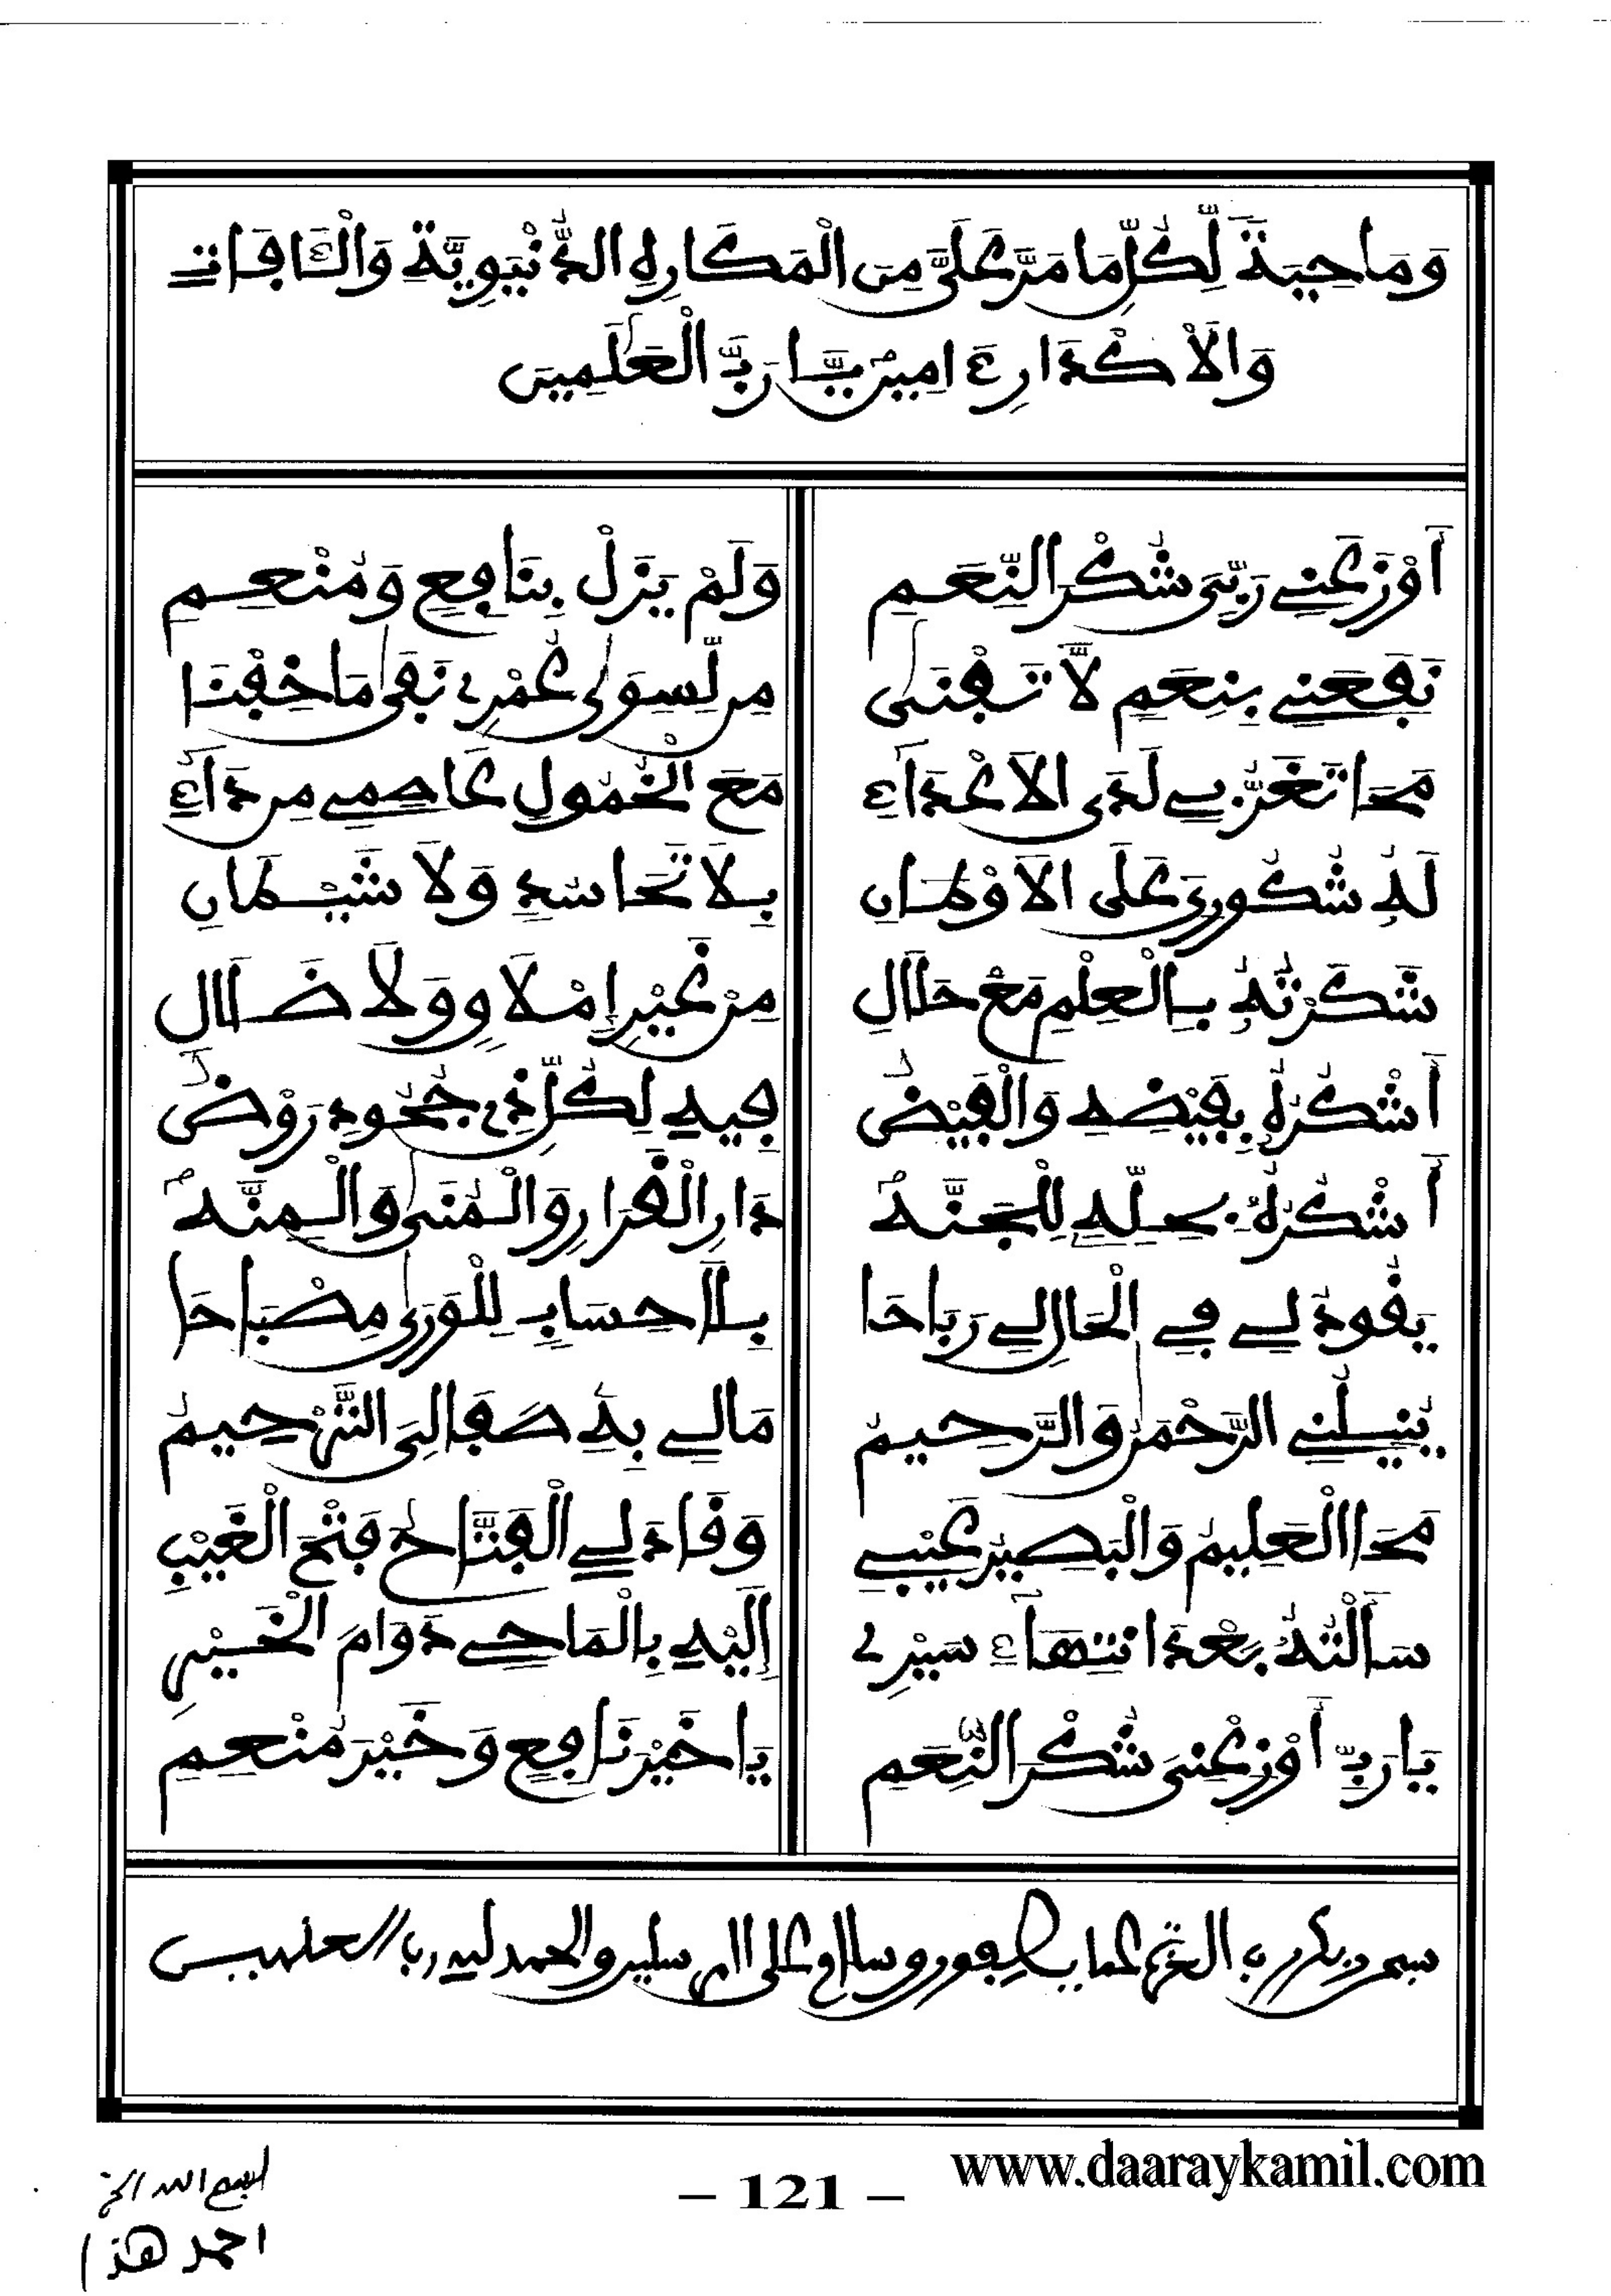 وَمَاحِيَةً لِّكُلِّ مَا مَرَّ عَلَيَّ مِنَ الْمَكَارِهِ الدُّنْيَوِيَّةِ وَالْآفَاتِ
وَالْأَكْدَارِ ءَامِينَ يَا رَبَّ الْعَالَمِينَ
أَوْزَعَنِي رَبِّيَ شُكْرَ النِّعَمِ وَلَمْ يَزَلْ بِنَافِعٍ وَمُنْعِمِ
نَفَعَنِي بِنِعَمٍ لَّا تَفْنَى مِن لِّسِوَى عُمْرِي نَفَى مَا خِفْنَا
مَحَا تَغَرُّبِي لَدَى الْأَعْدَاءِ مَعَ الْخُمُولِ عَاصِمِي مِن دَاءِ
لَهُ شُكُورِيَ عَلَى الْأَوْطَانِ بِلَا تَحَاسُدٍ وَلَا شَيْطَانِ
شَكَرْتُهُ بِالْعِلْمِ مَعْ حَلَالِ مِنْ غَيْرِ إِمْلَاءٍ وَلَا ضَلَالِ
أَشْكُرُهُ بِفَيْضِهِ وَالْفَيْضُ فِيهِ لِكُلِّ ذِي جُحُودٍ رَوْضُ
أَشْكُرُهُ بِحِلِّهِ لِلْجَنَّهْ دَارِ الْقَرَارِ وَالْمُنَى وَالْمِنَّهْ
يَقُودُ لِي فِي الْحَالِ لِي رَبَاحَا بِلَا حِسَابٍ لِلْوَرَى مِصْبَاحَا
يُنِيلُنِي الرَّحْمَنُ وَالرَّحِيمُ مَا لِي بِهِ صَفَا لِيَ التَّرْحِيمُ
مَحَا الْعَلِيمُ وَالْبَصِيرُ عَيْبِي وَقَادَ لِي الْفَتَّاحُ فَتْحَ الْغَيْبِ
سَأَلْتُهُ بَعْدَ انْتِهَاءِ سَيْرِي إِلَيْهِ بِالْمَاحِي دَوَامَ الْخَيْرِ
يَا رَبِّ أَوْزِعْنِيَ شُكْرَ النِّعَمِ يَا خَيْرَ نَافِعٍ وَخَيْرَ مُنْعِمِ
سبحن ربك رب العزة عما يصفون وسلام على المرسلين والحمد لله رب العلمين
www.daaraykamil.com
– 121 –
احمد